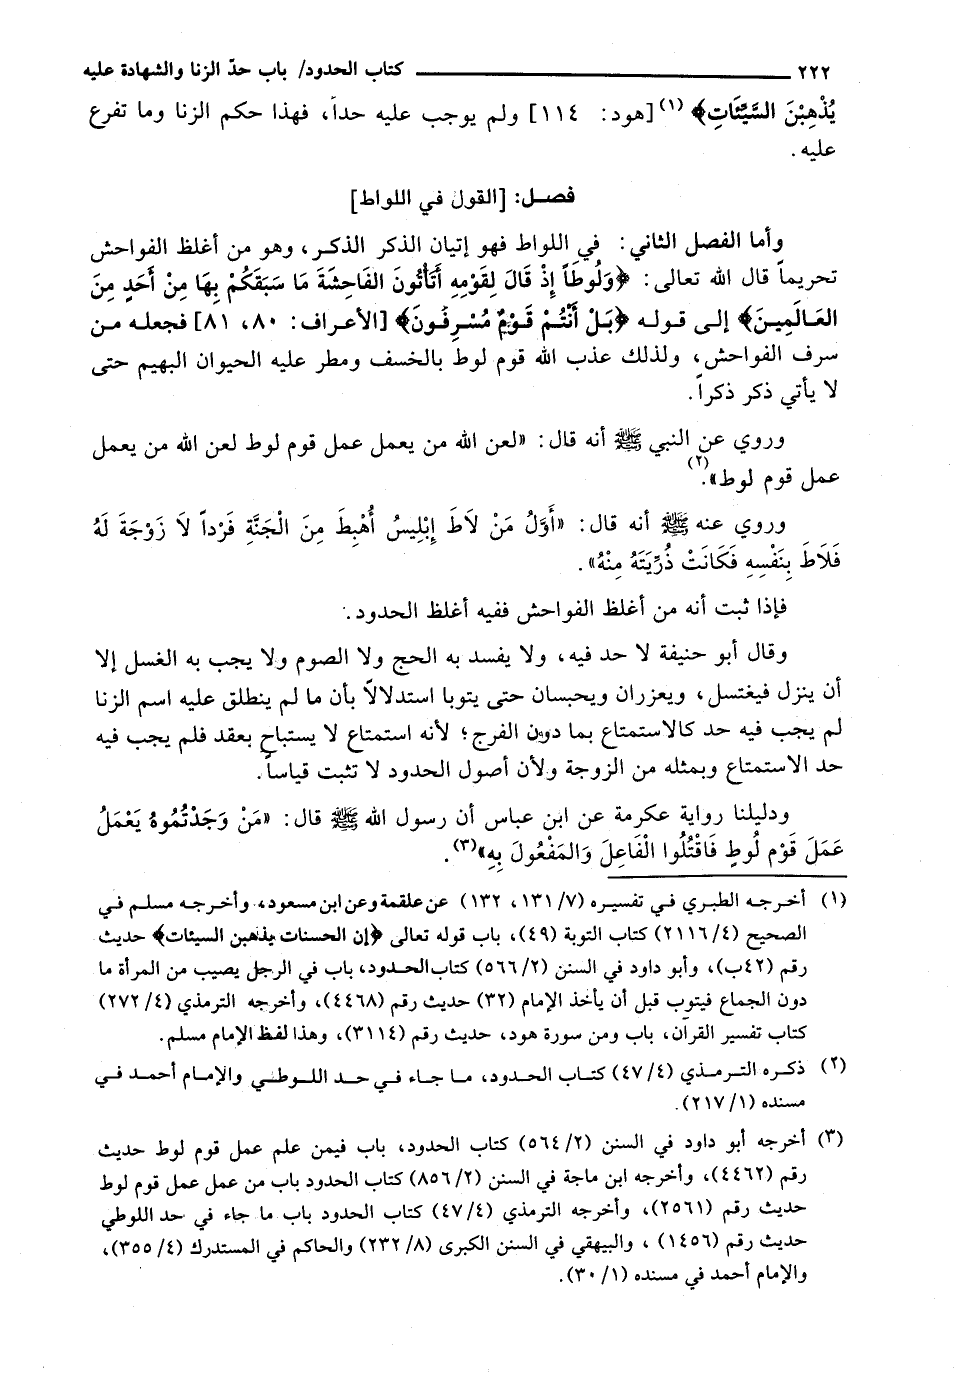 ٢٢٢ كتاب الحدود/ باب حدّ الزنا والشهادة عليه
يُذْهِبْنَ السَّيِّئَاتِ﴾ (١) [هود: ١١٤] ولم يوجب عليه حداً، فهذا حكم الزنا وما تفرع
عليه.
فصل: [القول في اللواط]
وأما الفصل الثاني: في اللواط فهو إتيان الذكر الذكر، وهو من أغلظ الفواحش
تحريماً قال الله تعالى: ﴿وَلُوطاً إِذْ قَالَ لِقَوْمِهِ أَتَأْتُونَ الفَاحِشَةَ مَا سَبَقَكُمْ بِهَا مِنْ أَحَدٍ مِنَ
العَالَمِينَ﴾ إلى قوله ﴿بَلْ أَنْتُمْ قَوْمٌ مُسْرِفُونَ﴾ [الأعراف: ٨٠، ٨١] فجعله من
سرف الفواحش، ولذلك عذب الله قوم لوط بالخسف ومطر عليه الحيوان البهيم حتى
لا يأتي ذكر ذكراً.
وروي عن النبي ﷺ أنه قال: «لعن الله من يعمل عمل قوم لوط لعن الله من يعمل
عمل قوم لوط»(٢).
وروي عنه ﷺ أنه قال: «أَوَّلُ مَنْ لاَطَ إِبْلِيسُ أُهْبِطَ مِنَ الْجَنَّةِ فَرْداً لاَ زَوْجَةَ لَهُ
فَلاَطَ بِنَفْسِهِ فَكَانَتْ ذُرِّيَّتَهُ مِنْهُ».
فإذا ثبت أنه من أغلظ الفواحش ففيه أغلظ الحدود.
وقال أبو حنيفة لا حد فيه، ولا يفسد به الحج ولا الصوم ولا يجب به الغسل إلا
أن ينزل فيغتسل، ويعزران ويحبسان حتى يتوبا استدلالاً بأن ما لم ينطلق عليه اسم الزنا
لم يجب فيه حد كالاستمتاع بما دون الفرج؛ لأنه استمتاع لا يستباح بعقد فلم يجب فيه
حد الاستمتاع وبمثله من الزوجة ولأن أصول الحدود لا تثبت قياساً.
ودليلنا رواية عكرمة عن ابن عباس أن رسول الله ﷺ قال: «مَنْ وَجَدْتُمُوهُ يَعْمَلُ
عَمَلَ قَوْمِ لُوطٍ فَاقْتُلُوا الْفَاعِلَ وَالمَفْعُولَ بِهِ»(٣).
(١) أخرجه الطبري في تفسيره (٧/ ١٣١، ١٣٢) عن علقمة وعن ابن مسعود، وأخرجه مسلم في
الصحيح (٤/ ٢١١٦) كتاب التوبة (٤٩)، باب قوله تعالى ﴿إن الحسنات يذهبن السيئات﴾ حديث
رقم (٤٢ب)، وأبو داود في السنن (٢/ ٥٦٦) كتاب الحدود، باب في الرجل يصيب من المرأة ما
دون الجماع فيتوب قبل أن يأخذ الإمام (٣٢) حديث رقم (٤٤٦٨)، وأخرجه الترمذي (٤/ ٢٧٢)
كتاب تفسير القرآن، باب ومن سورة هود، حديث رقم (٣١١٤)، وهذا لفظ الإمام مسلم.
(٢) ذكره الترمذي (٤/ ٤٧) كتاب الحدود، ما جاء في حد اللوطي والإمام أحمد في
مسنده (١/ ٢١٧).
(٣) أخرجه أبو داود في السنن (٢/ ٥٦٤) كتاب الحدود، باب فيمن علم عمل قوم لوط حديث
رقم (٤٤٦٢)، وأخرجه ابن ماجة في السنن (٢/ ٨٥٦) كتاب الحدود باب من عمل عمل قوم لوط
حديث رقم (٢٥٦١)، وأخرجه الترمذي (٤/ ٤٧) كتاب الحدود باب ما جاء في حد اللوطي
حديث رقم (١٤٥٦) ، والبيهقي في السنن الكبرى (٨/ ٢٣٢) والحاكم في المستدرك (٤/ ٣٥٥)،
والإمام أحمد في مسنده (١/ ٣٠).